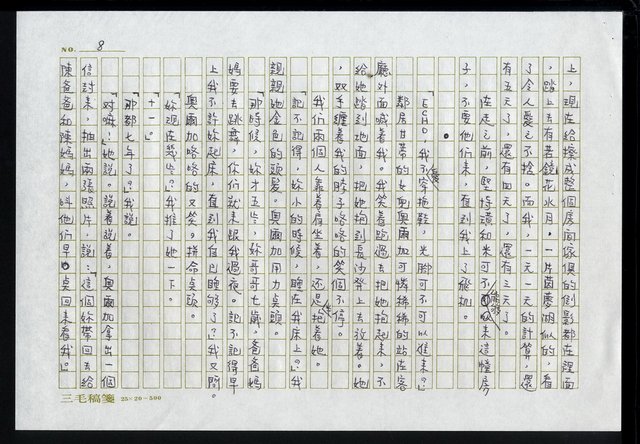 NO. 8
上，現在給擦成整個房間傢俱的倒影都在裡面
，踏上去有若鏡花水月。一片茵夢湖似的，看
了令人愛之不捨。而我，一天一天的計算，還
有五天了，還有四天了，還有三天了。
在走之前，堅持璜和米可不能來這幢房
子，不要他們來，直到我上了飛機。
•
「ECHO，我不穿拖鞋，光腳可不可以進來？」
鄰居甘蒂的女兒奧爾加可憐稀稀的站在客
廳外面喊着我。我笑着跑過去把她抱起來，不
給她踏到地面，把她抱到長沙發上去放着。她
，雙手纏着我的脖子咯咯的笑個不停。
我們兩個人靠着肩坐着，還是抱着她。
「記不記得，妳小的時候，睡在我床上。」我
親親她金色的頭髮。奧爾加用力點頭。
「那時候，妳才五歲，妳哥哥七歲。爸爸媽
媽要去跳舞，你們就來跟我過夜。記不記得早
上我不許妳起床，直到我自己睡夠了？」我又問。
奧爾加咯咯的又笑，拼命點頭。
「妳現在幾歲？」我推了她一下。
「十一。」
「都七年了？」我說。
「對嘛！」她說。說着說着，奧爾加拿出一個
信封來，抽出兩張照片，說：「這個妳帶回去給
陳爸爸和陳媽媽，叫他們早點回來看我。」
三毛稿箋 25×20=500